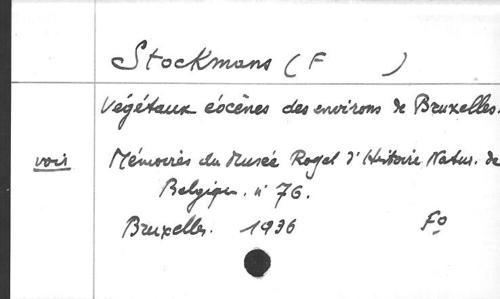 Stockmans (F )
Végétaux éocènes des environs de Bruxelles.
voir Mémoires du Musée Royal d'Histoire Natur. de
Belgique. n° 76.
Bruxelles. 1936 Fo